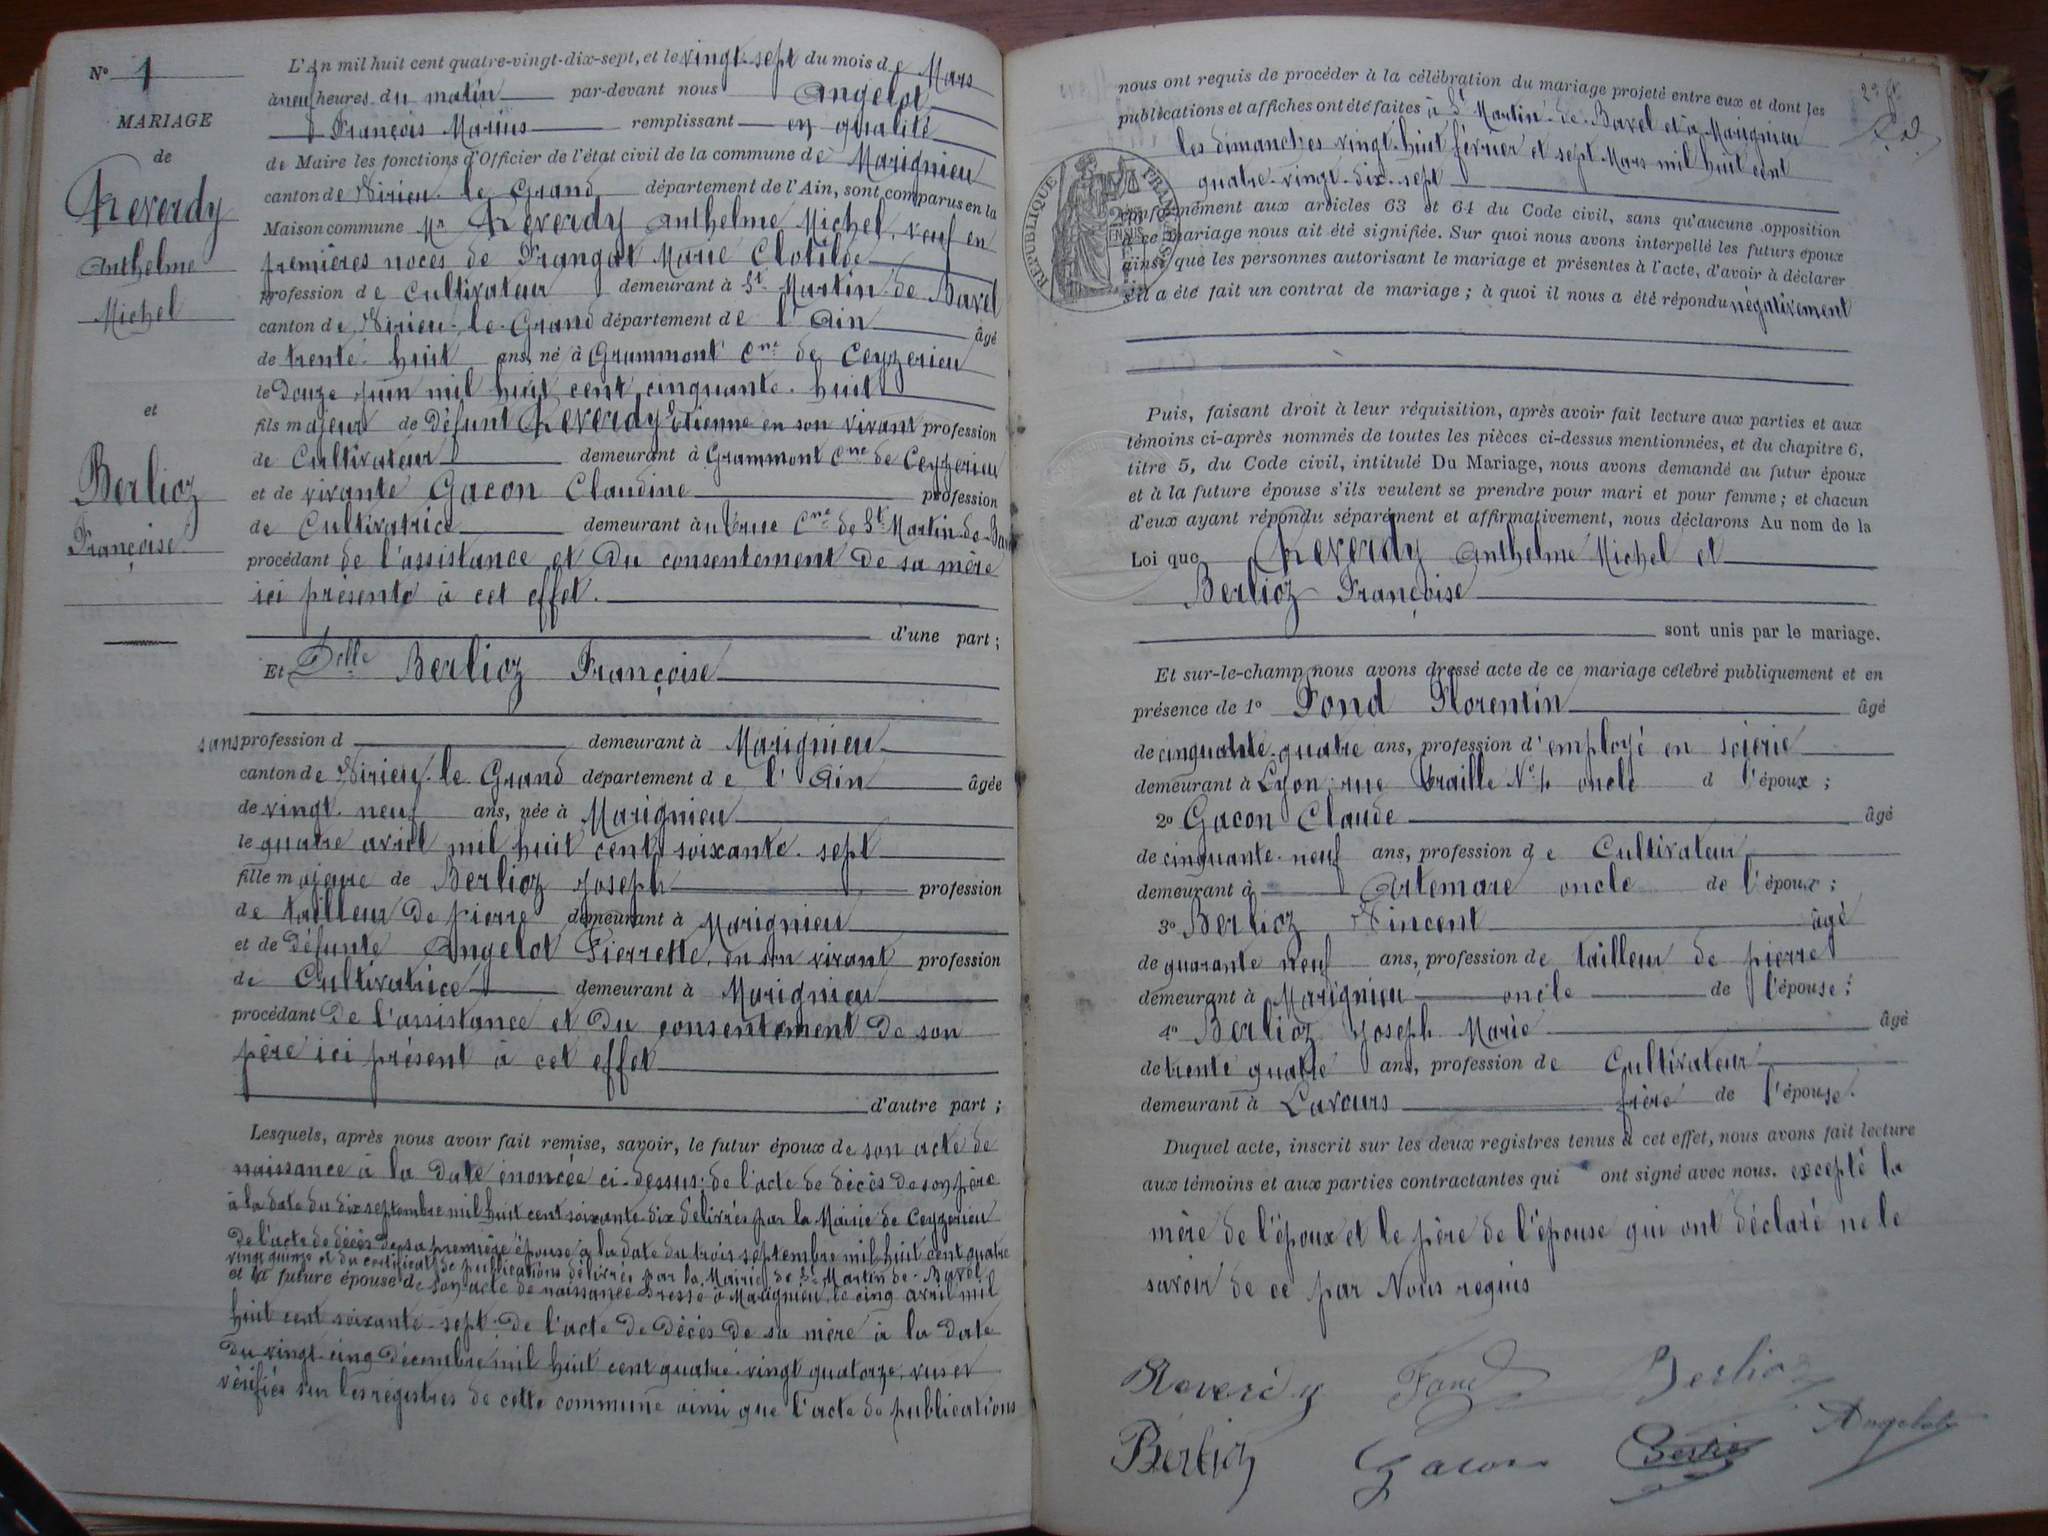 N° 1
MARIAGE
de
Reverdy
Anthelme
Michel
et
Berlioz
Françoise
L'An mil huit cent quatre-vingt-dix-sept, et le vingt-sept du mois de Mars
à neuf heures du matin par-devant nous Angelot
François Marius remplissant en qualité
de Maire les fonctions d'Officier de l'état civil de la commune de Marignieu
canton de Virieu-le-Grand département de l'Ain, sont comparus en la
Maison commune Mr Reverdy Anthelme Michel, veuf en
premières noces de Frangat Marie Clotilde
profession de Cultivateur demeurant à St Martin-de-Bavel
canton de Virieu-le-Grand département de l'Ain âgé
de trente-huit ans, né à Grammont Cne de Ceyzerieu
le Douze juin mil huit cent cinquante-huit
fils majeur de Défunt Reverdy Etienne en son vivant profession
de Cultivateur demeurant à Grammont Cne de Ceyzerieu
et de vivante Gacon Claudine profession
de Cultivatrice demeurant à Cne de St Martin-de-Bavel
procédant de l'assistance et du consentement de sa mère
ici présente à cet effet.
d'une part;
Et Delle Berlioz Françoise
sans profession d demeurant à Marignieu
canton de Virieu-le-Grand département de l'Ain âgée
de vingt-neuf ans, née à Marignieu
le quatre avril mil huit cent soixante-sept
fille majeure de Berlioz Joseph profession
de tailleur de pierre demeurant à Marignieu
et de défunte Angelot Pierrette, en son vivant profession
de Cultivatrice demeurant à Marignieu
procédant de l'assistance et du consentement de son
père ici présent à cet effet
d'autre part;
Lesquels, après nous avoir fait remise, savoir, le futur époux de son acte de
naissance à la date énoncée ci-dessus; de l'acte de décès de son père
à la date du dix septembre mil huit cent soixante-dix délivrés par la Mairie de Ceyzerieu
de l'acte de décès de sa première épouse à la date du trois septembre mil huit cent quatre
vingt quinze et du certificat de publications délivrés par la Mairie de St Martin-de-Bavel
et la future épouse de son acte de naissance dressé à Marignieu, le cinq avril mil
huit cent soixante-sept; de l'acte de décès de sa mère à la date
du vingt-cinq décembre mil huit cent quatre-vingt quatorze, vus et
vérifiés sur les registres de cette commune ainsi que l'acte de publications
nous ont requis de procéder à la célébration du mariage projeté entre eux et dont les
publications et affiches ont été faites à St Martin-de-Bavel et à Marignieu
les dimanches vingt-huit février et sept Mars mil huit cent
quatre-vingt-dix-sept
conformément aux articles 63 et 64 du Code civil, sans qu'aucune opposition
à ce mariage nous ait été signifiée. Sur quoi nous avons interpellé les futurs époux
ainsi que les personnes autorisant le mariage et présentes à l'acte, d'avoir à déclarer
s'il a été fait un contrat de mariage; à quoi il nous a été répondu négativement
RÉPUBLIQUE FRANÇAISE
Puis, faisant droit à leur réquisition, après avoir fait lecture aux parties et aux
témoins ci-après nommés de toutes les pièces ci-dessus mentionnées, et du chapitre 6,
titre 5, du Code civil, intitulé Du Mariage, nous avons demandé au futur époux
et à la future épouse s'ils veulent se prendre pour mari et pour femme; et chacun
d'eux ayant répondu séparément et affirmativement, nous déclarons Au nom de la
Loi que Reverdy Anthelme Michel et
Berlioz Françoise
sont unis par le mariage.
Et sur-le-champ nous avons dressé acte de ce mariage célébré publiquement et en
présence de 1° Fond Florentin âgé
de cinquante-quatre ans, profession d'employé en soierie
demeurant à Lyon rue N° 4 oncle d l'époux;
2° Gacon Claude âgé
de cinquante-neuf ans, profession de Cultivateur
demeurant à Artemare oncle de l'époux;
3° Berlioz Vincent âgé
de quarante neuf ans, profession de tailleur de pierre
demeurant à Marignieu oncle de l'épouse;
4° Berlioz Joseph Marie âgé
de trente quatre ans, profession de Cultivateur
demeurant à Lavours frère de l'épouse.
Duquel acte, inscrit sur les deux registres tenus à cet effet, nous avons fait lecture
aux témoins et aux parties contractantes qui ont signé avec nous. excepté la
mère de l'époux et le père de l'épouse qui ont déclaré ne le
savoir de ce par Nous requis
Reverdy Fond Berlioz
Berlioz Gacon Berlioz Angelot